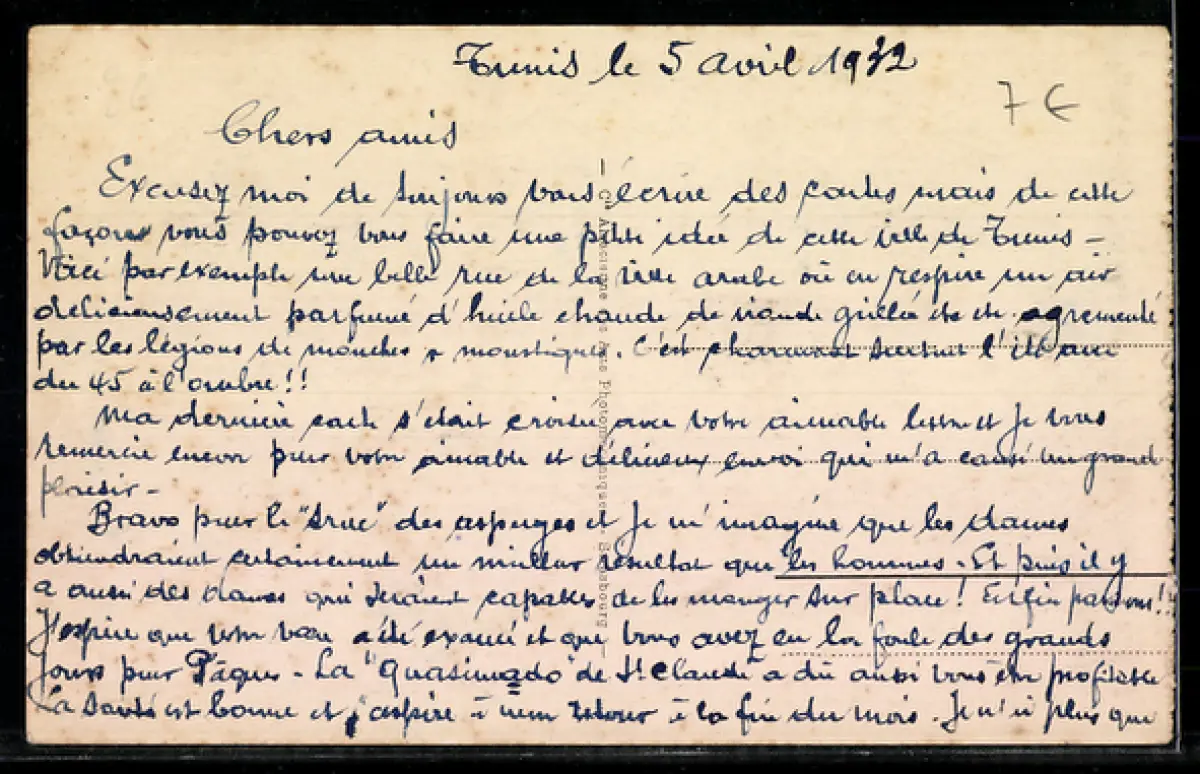 Tunis le 5 avril 1932
7 €
Chers amis
Excusez moi de toujours vous écrire des cartes mais de cette
façons vous pouvez vous faire une petite idée de cette ville de Tunis -
Voici par exemple une belle rue de la ville arabe où on respire un air
delicieusement parfumé d'huile chaude de viande grillée etc etc. agrementé
par les légions de mouches & moustiques. C'est charmant surtout l'été avec
du 45 à l'ombre!!
Ma dernière carte s'était croisée avec votre aimable lettre et Je vous
remercie encore pour votre aimable et délicieux envoi qui m'a causé un grand
plaisir -
Bravo pour le "truc" des asperges et Je m'imagine que les dames
obtiendraient certainement un meilleur résultat que les hommes. Et puis il y
a aussi des dames qui seraient capables de les manger sur place! Enfin passons!
J'espère que votre vœu a été exaucé et que vous avez eu la foule des grands
jours pour Pâques - La "Quasimodo" de St Claude a dû aussi vous être profitable
La santé est bonne et j'aspire à mon retour à la fin du mois. Je n'ai plus que